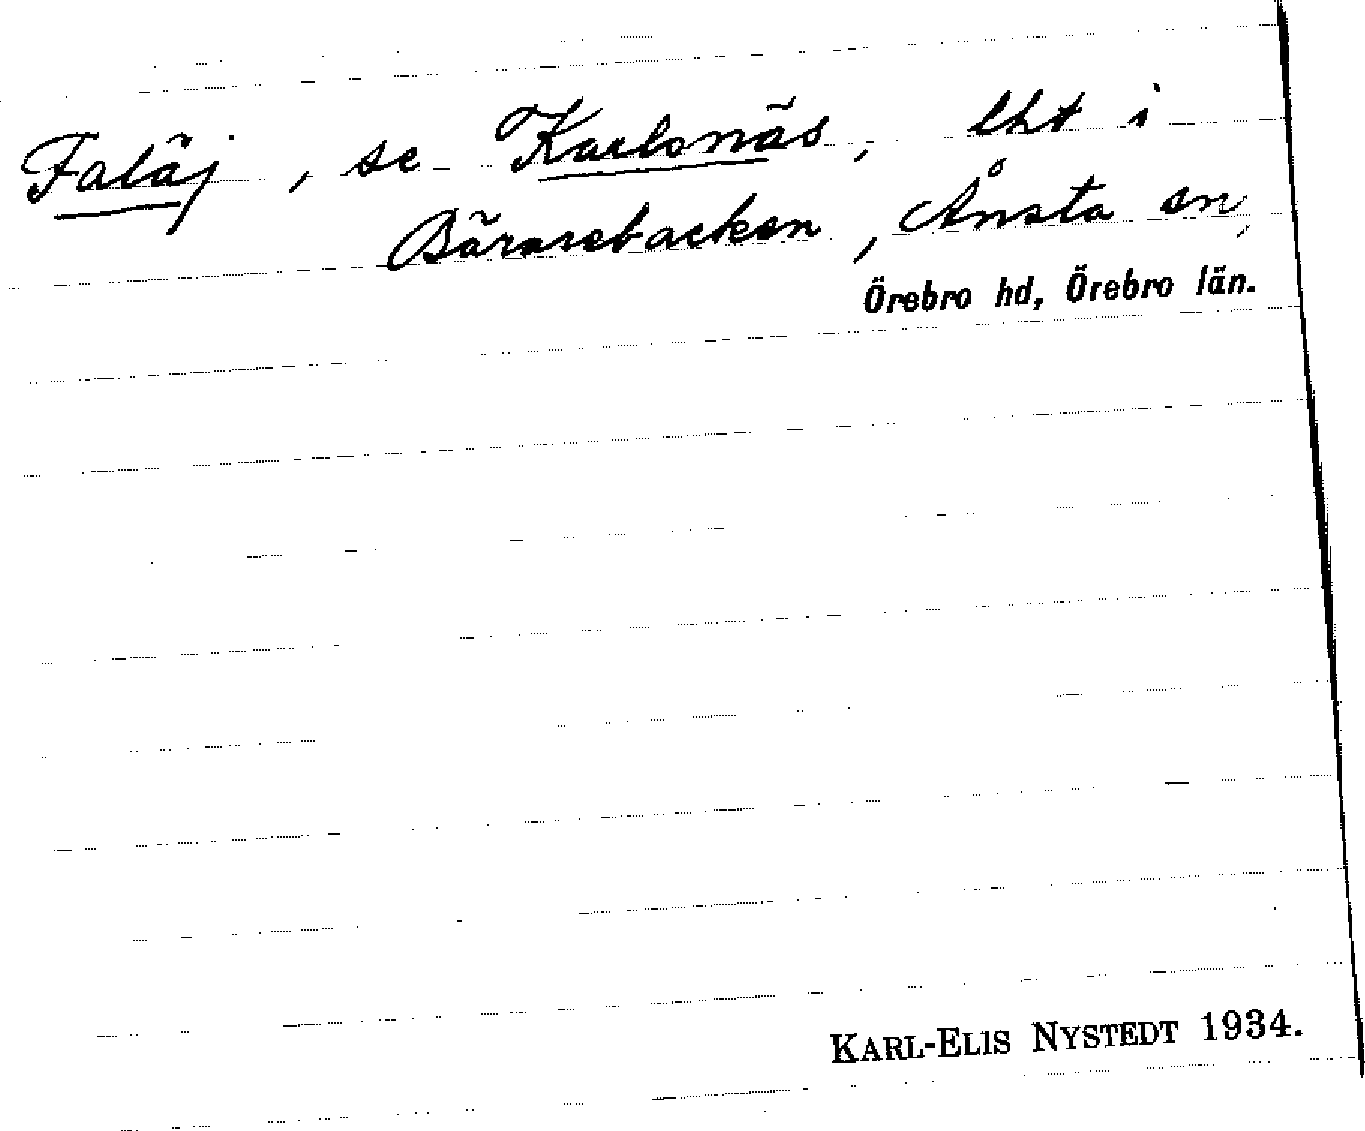 Faläj, se Karlsnäs, lht i
Bärarebacken, Ånsta sn,
Örebro hd, Örebro län.
KARL-ELIS NYSTEDT 1934.